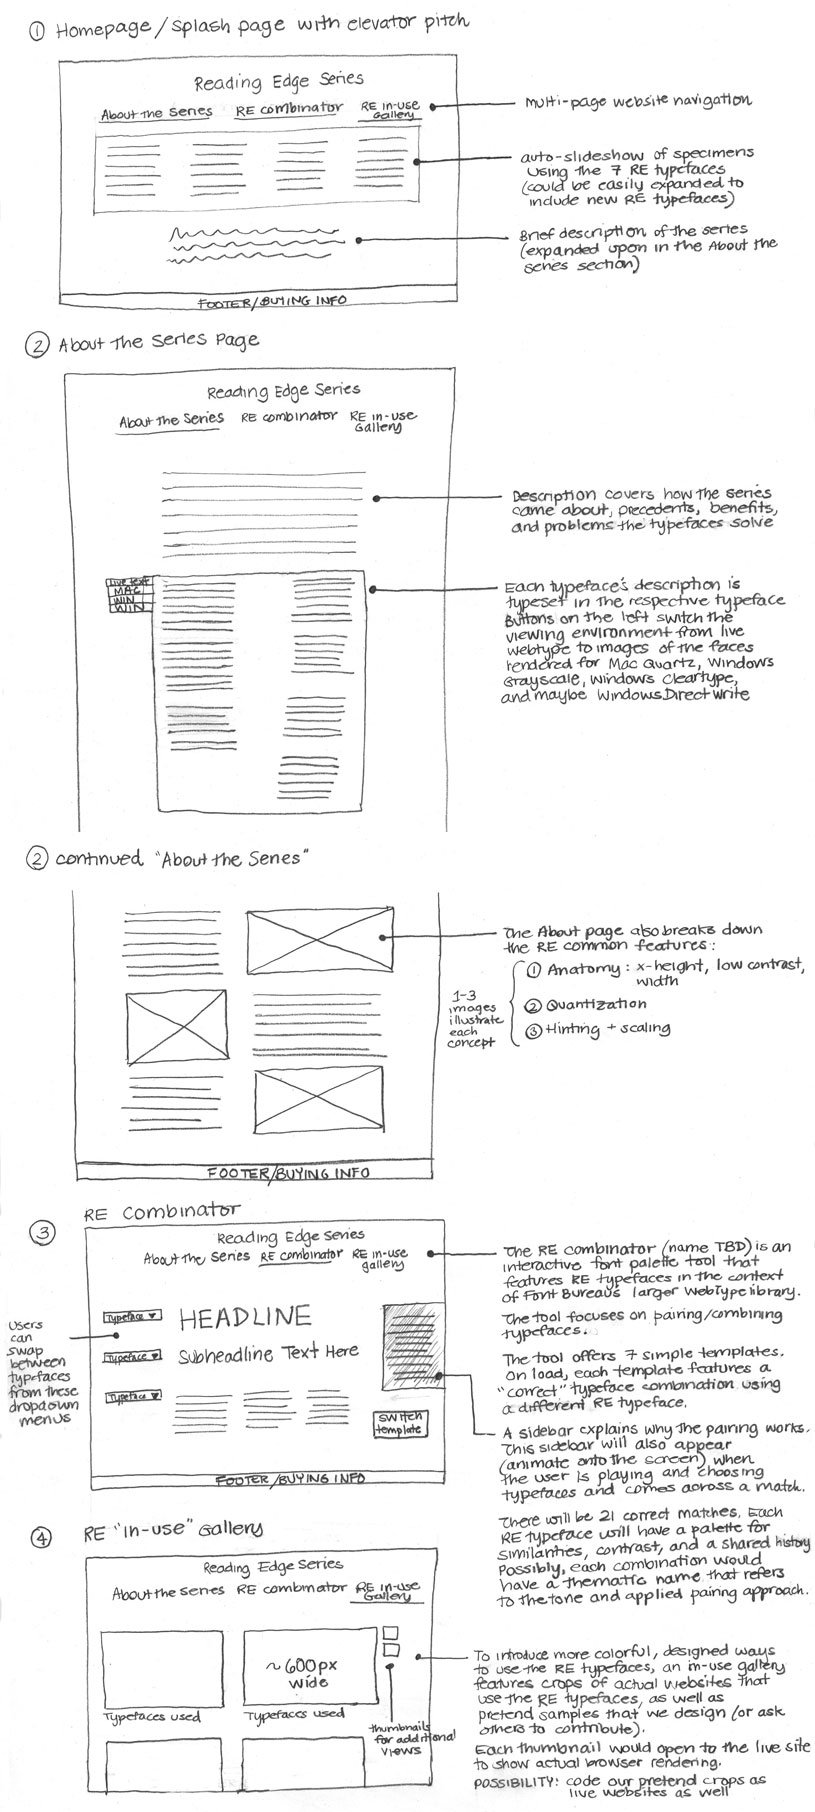 ① Homepage/splash page with elevator pitch
Reading Edge Series
About the Series RE Combinator RE in-use
Gallery
Multi-page website navigation
auto-slideshow of specimens
using the 7 RE typefaces
(could be easily expanded to
include new RE typefaces)
Brief description of the series
(expanded upon in the About the
series section)
FOOTER/BUYING INFO
② About the Series Page
Reading Edge Series
About the Series RE Combinator RE in-use
Gallery
Description covers how the series
came about, precedents, benefits,
and problems the typefaces solve
Live text
MAC
WIN
WIN
Each typeface's description is
typeset in the respective typeface
Buttons on the left switch the
viewing environment from live
webtype to images of the faces
rendered for Mac Quartz, Windows
Grayscale, Windows Cleartype,
and maybe Windows Direct Write
② continued "About the Series"
The About page also breaks down
the RE common features:
① Anatomy: x-height, low contrast,
width
② Quantization
③ Hinting + scaling
1-3
images
illustrate
each
concept
FOOTER/BUYING INFO
③ RE Combinator
Reading Edge Series
About the Series RE Combinator RE in-use
gallery
Users
can
swap
between
typefaces
from these
dropdown
menus
Typeface ▼
HEADLINE
Typeface ▼
Subheadline Text Here
Typeface ▼
SWITCH
template
FOOTER/BUYING INFO
The RE Combinator (name TBD) is an
interactive font palette tool that
features RE typefaces in the context
of Font Bureau's larger Webtype library.
The tool focuses on pairing/combining
typefaces.
The tool offers 7 simple templates.
On load, each template features a
"correct" typeface combination using
a different RE typeface.
A sidebar explains why the pairing works.
This sidebar will also appear
(animate onto the screen) when
the user is playing and choosing
typefaces and comes across a match.
There will be 21 correct matches. Each
RE typeface will have a palette for
similarities, contrast, and a shared history
Possibly, each combination would
have a thematic name that refers
to the tone and applied pairing approach.
④ RE "in-use" Gallery
Reading Edge Series
About the Series RE Combinator RE in-use
Gallery
~600px
wide
Typefaces used Typefaces used
thumbnails
for additional
views
To introduce more colorful, designed ways
to use the RE typefaces, an in-use gallery
features crops of actual websites that
use the RE typefaces, as well as
pretend samples that we design (or ask
others to contribute).
Each thumbnail would open to the live site
to show actual browser rendering.
POSSIBILITY: code our pretend crops as
live websites as well